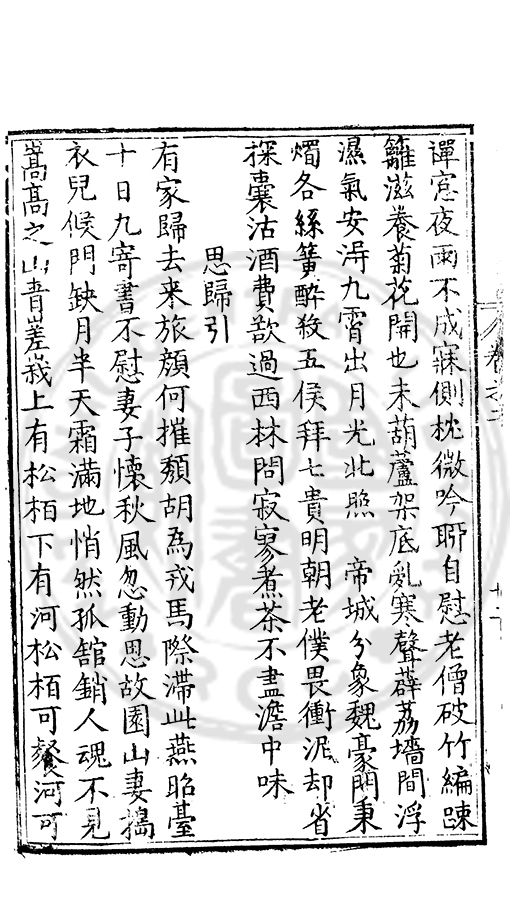 禪窓夜雨不成寐側枕微吟聊自慰老僧破竹編踈
籬滋養菊花開也未葫蘆架底亂寒聲薜荔墻間浮
濕氣安得九霄出月光北照　帝城分象魏豪門秉
燭各絲簧醉殺五侯拜七貴明朝老僕畏衝泥却省
探囊沽酒費欲過西林問寂寥煮茶不盡澹中味
思歸引
有家歸去來旅顔何摧頽胡為戎馬際滯此燕昭臺
十日九寄書不慰妻子懷秋風忽動思故園山妻搗
衣兒候門缺月半天霜滿地悄然孤舘銷人魂不見
嵩高之山青嵳峩上有松栢下有河松栢可餐河可